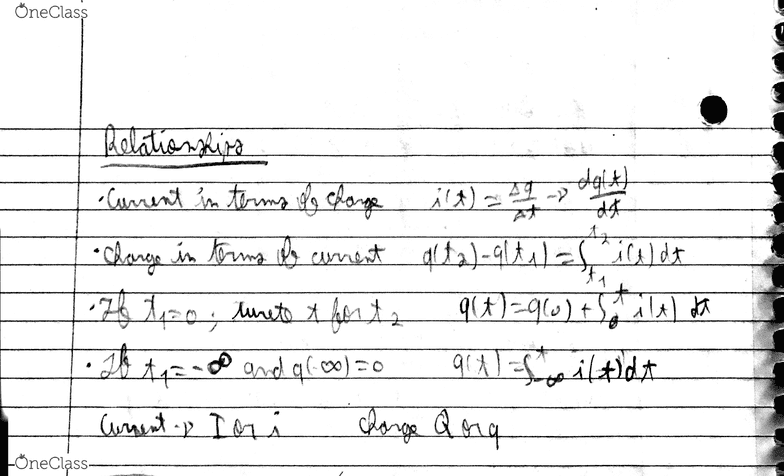 OneClass
Relationships
• Current in terms of charge i(t) = Δq/Δt → dq(t)/dt
• charge in terms of current q(t₂) - q(t₁) = ∫_{t₁}^{t₂} i(t) dt
• If t₁ = 0 ; t for t₂ q(t) = q(0) + ∫_0^t i(t) dt
• If t₁ = -∞ and q(-∞) = 0 q(t) = ∫_{-∞}^t i(t) dt
Current → I or i charge Q or q
OneClass